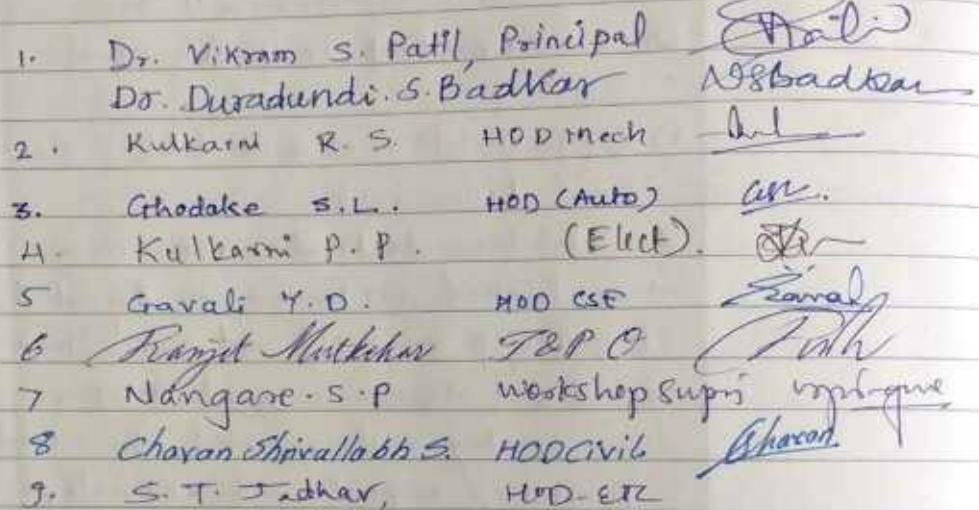 1. Dr. Vikram S. Patil, Principal
Dr. Duradundi. S. Badkar NSBadkar
2. Kulkarni R. S. HOD Mech
3. Ghodake S.L. HOD (Auto)
4. Kulkarni P. P. (Elect).
5 Gavali Y. D. HOD CSE
6 Ranjit Mutkekar T&P O
7 Nangare. S. P Workshop Supri
8 Chavan Shrivallabh S. HOD Civil Chavan
9. S. T. Jadhav, HOD-ETC